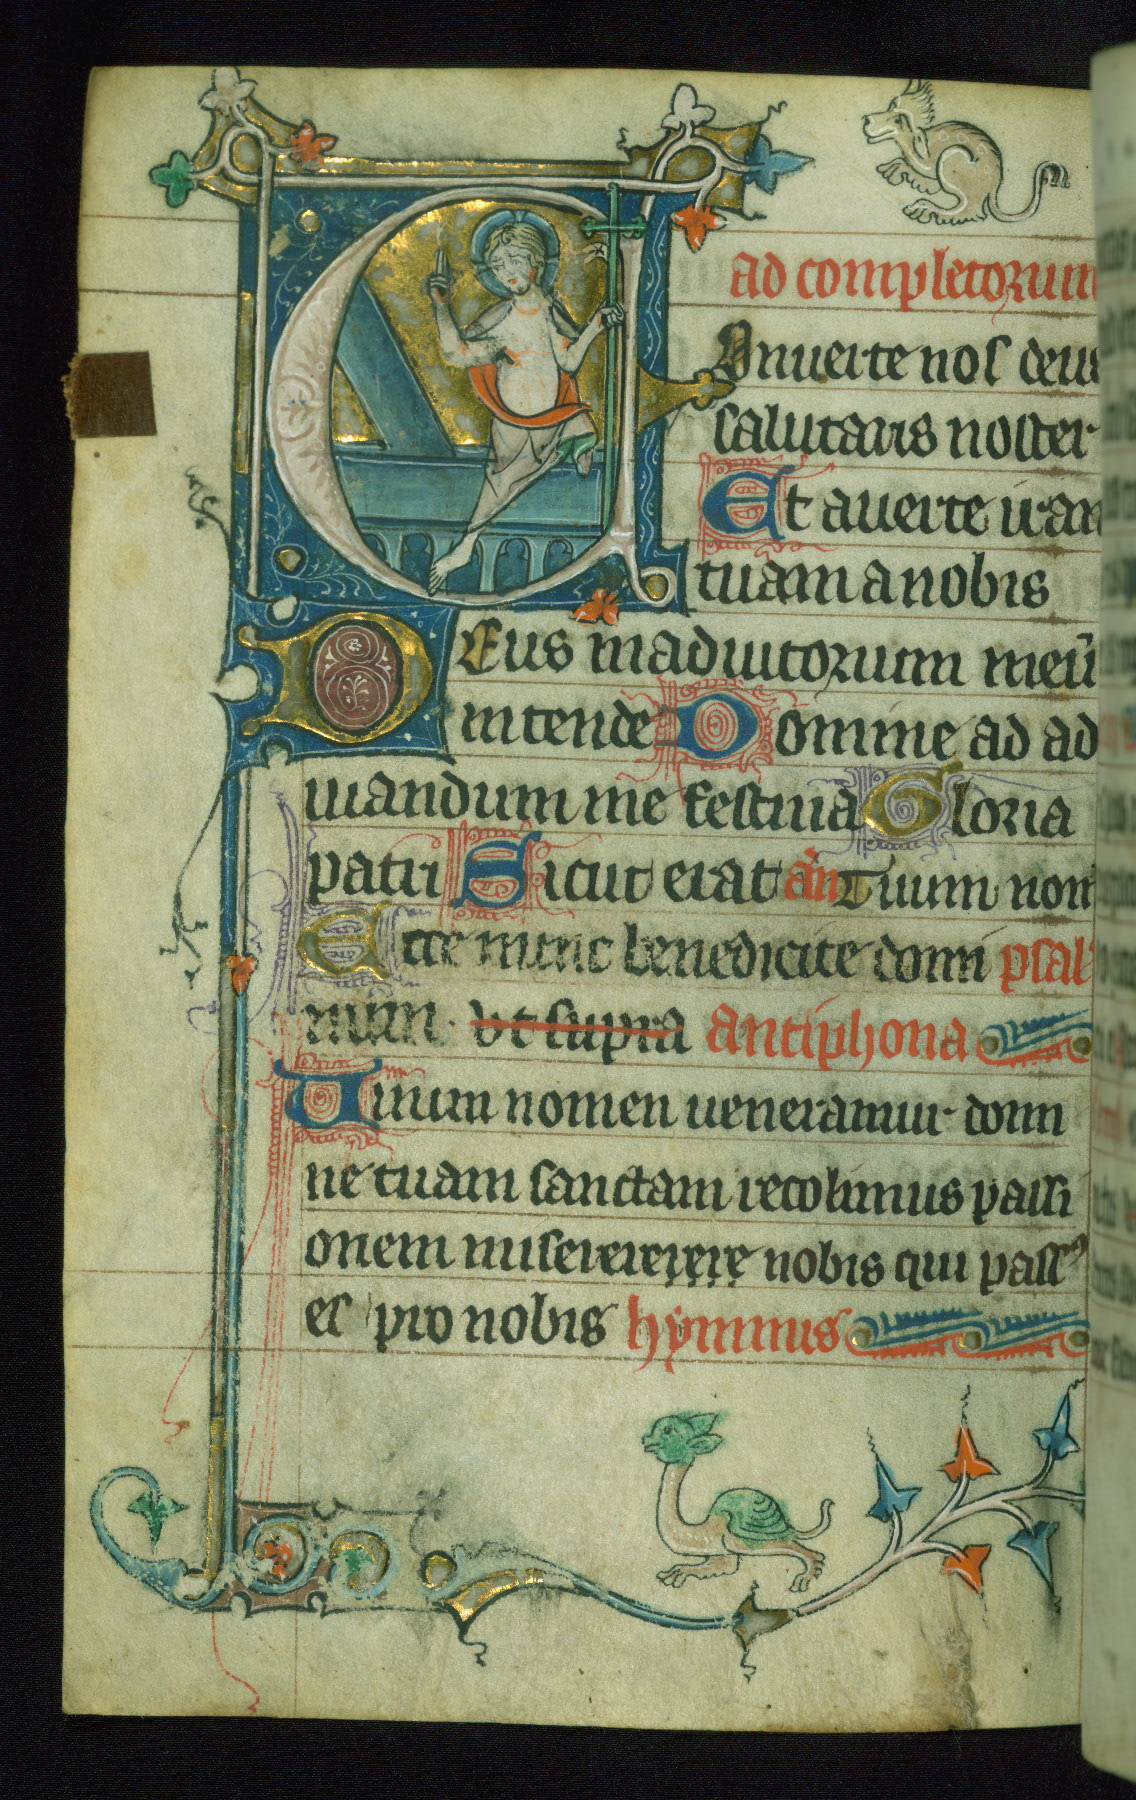 ad completorium
Conuerte nos deus
salutaris noster
Et auerte iram
tuam a nobis
Deus in adiutorium meū
intende Domine ad ad
iuuandum me festina Gloria
patri Sicut erat añ Tuum nom
Ecce nunc benedicite domi psal
mum ut supra antiphona
Tuum nomen ueneramur domi
ne tuam sanctam recolimus passi
onem miserererere nobis qui passꝰ
es pro nobis hymnus